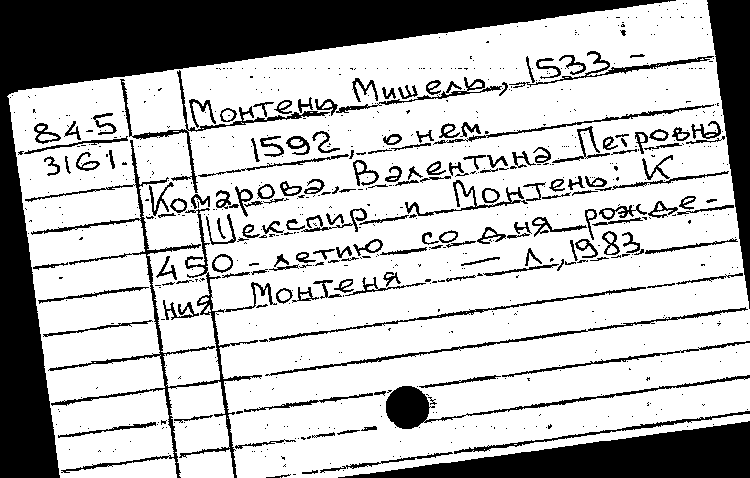 Монтень, Мишель, 1533 -
84-5
1592, о нем.
3161.
Комарова, Валентина Петровна
Шекспир и Монтень: К
450-летию со дня рожде-
ния Монтеня. — Л., 1983